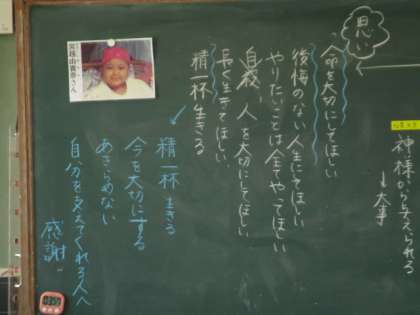 神様から与えられる
↓
大事
思い
命を大切にしてほしい
後悔のない人生にしてほしい
やりたいことは全てやってほしい
自殺、人を大切にしてほしい
長く生きてほしい
精一杯生きる
精一杯生きる
今を大切にする
あきらめない
自分を支えてくれる人へ
感謝
由貴奈さん